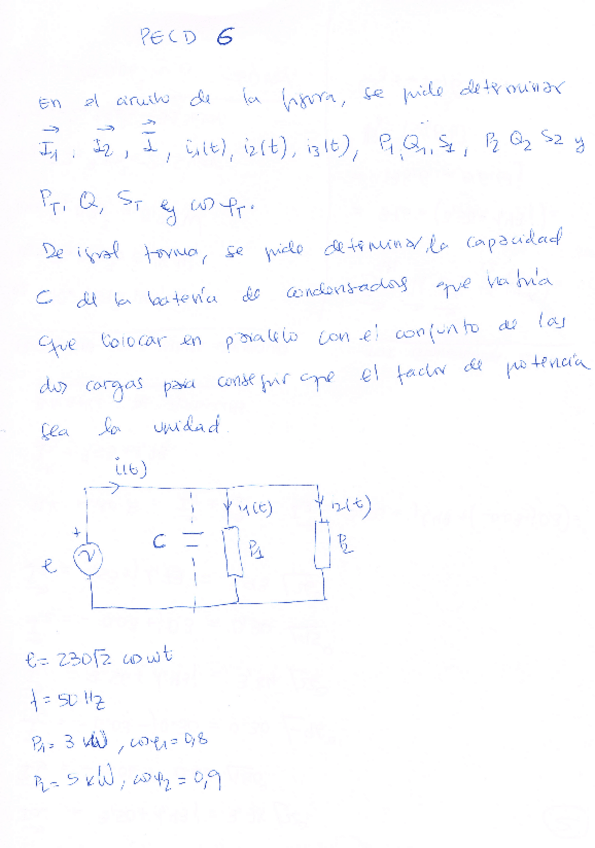 PECD 6
En el circuito de la figura, se pide determinar
I1, I2, I, i1(t), i2(t), i3(t), P1, Q1, S1, P2 Q2 S2 y
PT, Q, ST y cos φT.
De igual forma, se pide determinar la capacidad
C de la batería de condensadores que habría
que colocar en paralelo con el conjunto de las
dos cargas para conseguir que el factor de potencia
sea la unidad.
i(t)
+
e
C
i1(t)
P1
i2(t)
P2
e = 230√2 cos ωt
f = 50 Hz
P1 = 3 kW, cosφ1 = 0,8
P2 = 5 kW, cosφ2 = 0,9